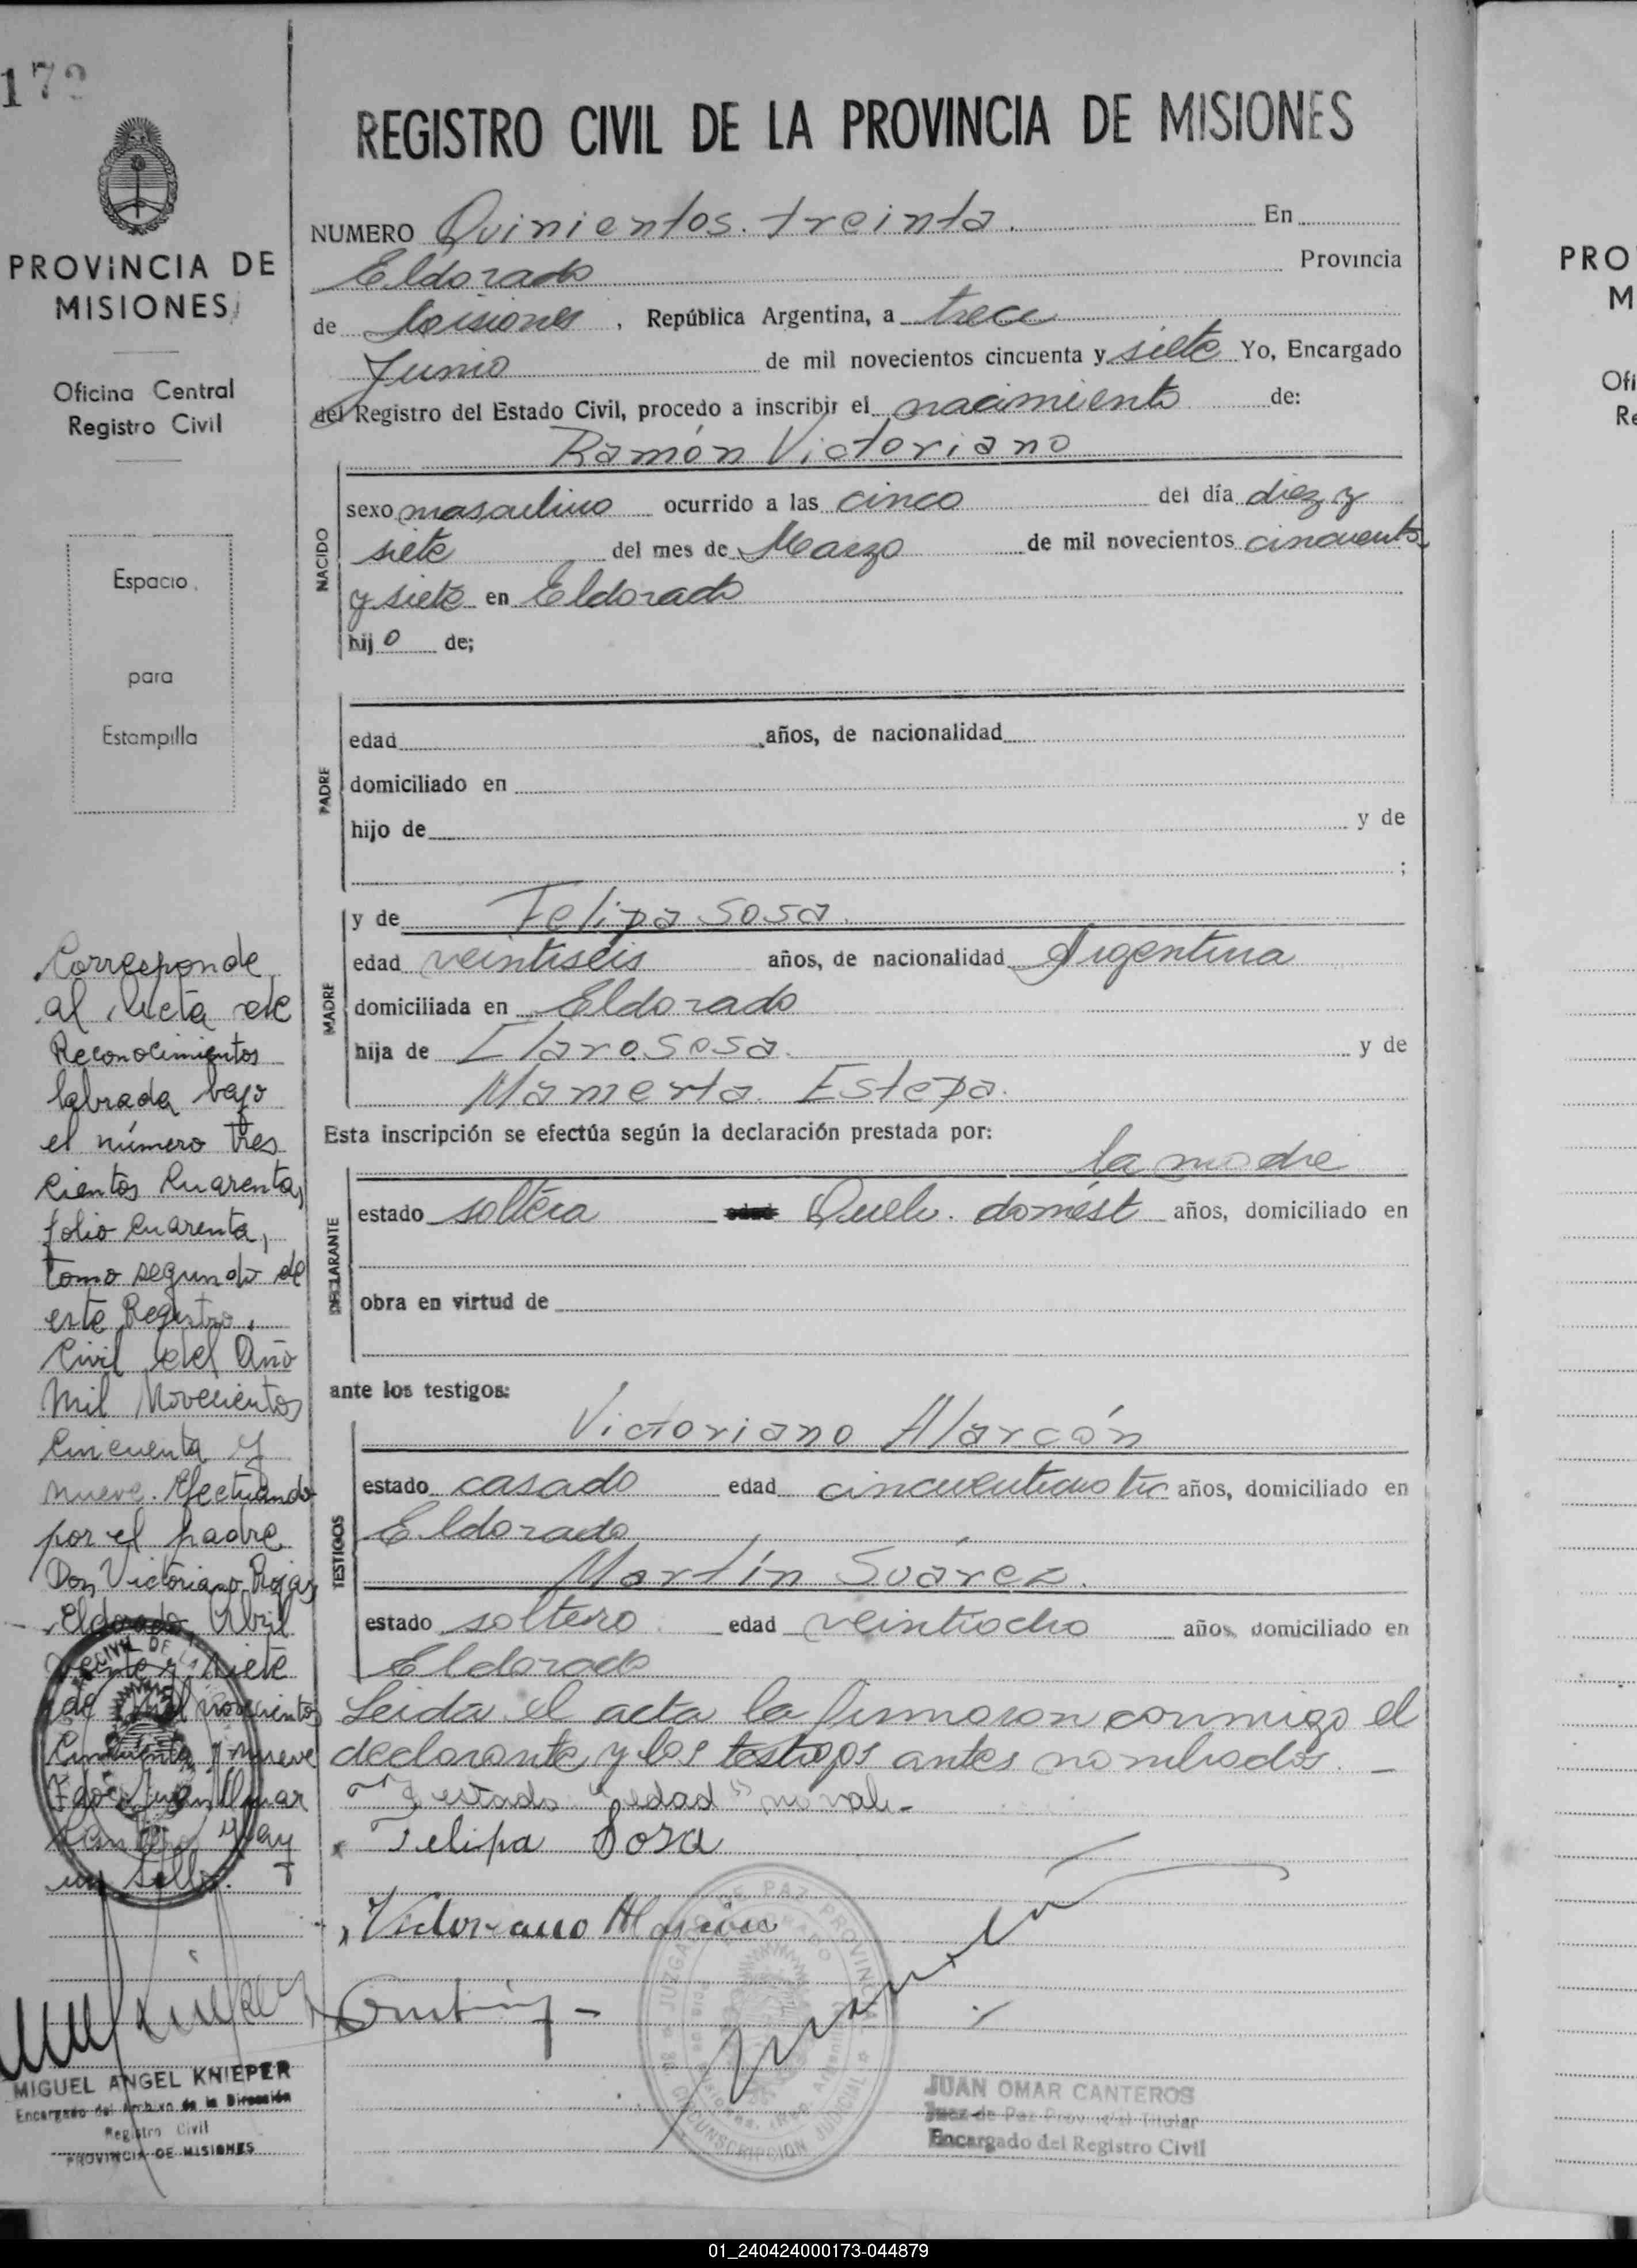 173
PROVINCIA DE
MISIONES
Oficina Central
Registro Civil
Espacio
para
Estampilla
Corresponde
al Acta de
Reconocimientos
labrada bajo
el número tres
cientos Cuarenta,
folio cuarenta,
tomo segundo de
este Registro
Civil del Año
Mil Novecientos
Cincuenta y
nueve. Efectuando
por el padre
Don Victoriano Rojas
Eldorado Abril
veinte y siete
de mil novecientos
Cincuenta y nueve
Fdo: Juan Omar
Canteros y hay
un sello.
MIGUEL ANGEL KNIEPER
Encargado del Archivo de la Dirección
Registro Civil
PROVINCIA DE MISIONES
REGISTRO CIVIL DE LA PROVINCIA DE MISIONES
NUMERO Quinientos treinta. En
Eldorado Provincia
de Misiones, República Argentina, a trece
Junio de mil novecientos cincuenta y siete Yo, Encargado
del Registro del Estado Civil, procedo a inscribir el nacimiento de:
Ramón Victoriano
NACIDO
sexo masculino ocurrido a las cinco del día diez y
siete del mes de Marzo de mil novecientos cincuenta
y siete en Eldorado
hijo de;
PADRE
edad años, de nacionalidad
domiciliado en
hijo de y de
;
MADRE
y de Felipa Sosa.
edad veintiséis años, de nacionalidad Argentina
domiciliada en Eldorado
hija de Claro Sosa. y de
Mamerta Estepa.
Esta inscripción se efectúa según la declaración prestada por:
la madre
DECLARANTE
estado soltera edad Queh. domést años, domiciliado en
obra en virtud de
ante los testigos:
TESTIGOS
Victoriano Alarcón
estado casado edad años, domiciliado en
Eldorado
Martín Suárez.
estado soltero edad veintiocho años, domiciliado en
Eldorado
Leida el acta la firmaron conmigo el
declarante y los testigos antes nombrados. —
testado "edad" no vale-
Felipa Sosa
Victoriano Alarcón
JUZGADO DE PAZ PROVINCIAL
CIRCUNSCRIPCION JUDICIAL
JUAN OMAR CANTEROS
Juez de Paz Provincial Titular
Encargado del Registro Civil
PRO
M
Ofi
Re
01_240424000173-044879